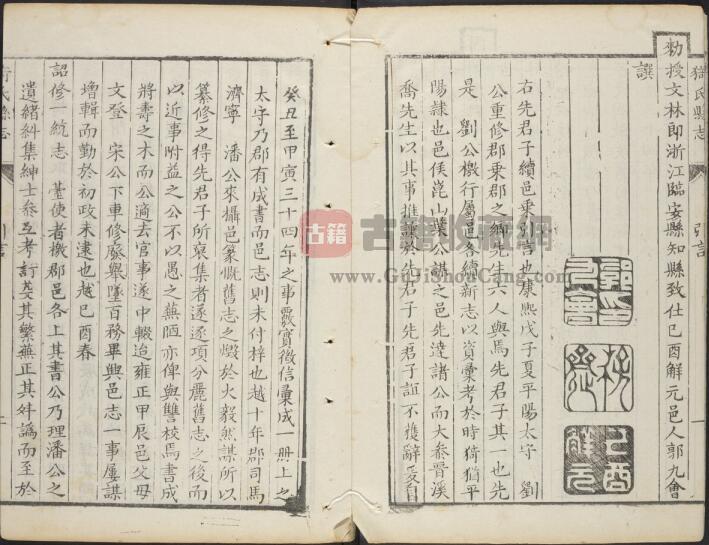 猗氏縣志
引言
一
勑授文林郎浙江臨安縣知縣致仕己酉解元邑人郭九會
譔
右先君子續邑乘別言也康熙戊子夏平陽太守 劉
公重修郡乘郡之鄉先生六人與焉先君子其一也先
是 劉公檄行屬邑各續新志以資彙考於時猗猶平
陽隷也邑侯崑山葉公謀之邑先達諸公而大叅晉溪
喬先生以其事推讓於先君子先君子誼不獲辭爰自
癸丑至甲寅三十四年之事覈實徵信彙成一冊上之
太守乃郡有成書而邑志則未付梓也越十年郡司馬
濟寧 潘公來攝邑篆慨舊志之燬於火毅然謀所以
纂修之得先君子所裒集者遂逐項分麗舊志之後而
以近事附益之公不以愚之蕪陋亦俾與讐校焉書成
將壽之木而公適去官事遂中輟迨雍正甲辰邑父母
文登 宋公下車修廢舉墜百務畢興邑志一事屢謀
增輯而勤於初政未逮也越己酉春
詔修一統志 臺使者檄郡邑各上其書公乃理潘公之
遺緒糾集紳士叅互考訂芟其繁蕪正其舛譌而至於
古籍 古籍收藏网
www.GuJiShouCang.com